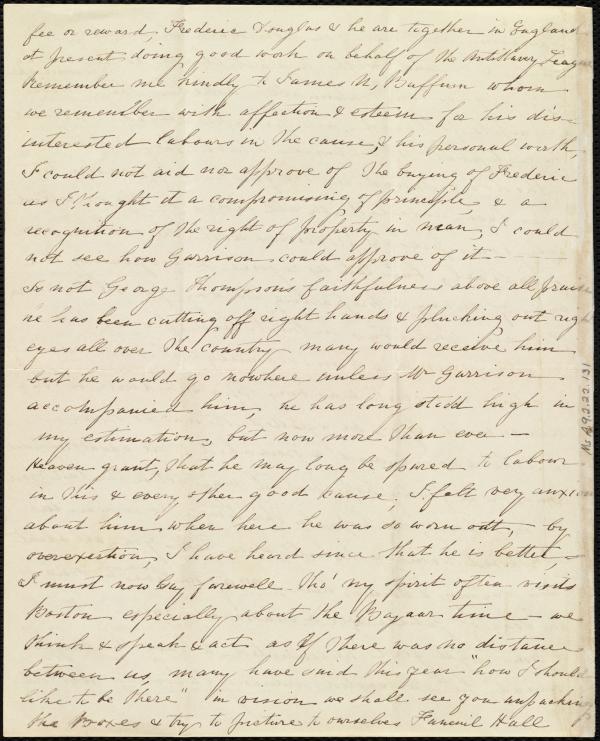 fee or reward, Frederic Douglas & he are together in England
at present doing good work on behalf of the AntiSlavery League
Remember me kindly to James N, Buffum whom
we remember with affection & esteem for his dis-
interested labours in the cause, & his personal worth,
I could not aid nor approve of the buying of Frederic
as I thought it a compromising of principle, & a
recognition of the right of property in man, I could
not see how Garrison could approve of it —
Is not George Thompson's faithfulness above all praise
he has been cutting off right hands & plucking out right
eyes all over the country many would receive him
but he would go nowhere unless Mr Garrison
accompanied him, he has long stood high in
my estimation, but now more than ever —
Heaven grant, that he may long be spared to labour
in this & every other good cause, I felt very anxious
about him when here he was so worn out, by
overexertion, I have heard since that he is better, —
I must now say farewell. Tho' my spirit often visits
Boston especially about the Bazaar time — we
think & speak & act as if there was no distance
between us, many have said this year "how I should
like to be there" in vision we shall see you unpacking
the Boxes & try to picture to ourselves Faneuil Hall
Ms.A.9.2.22.131